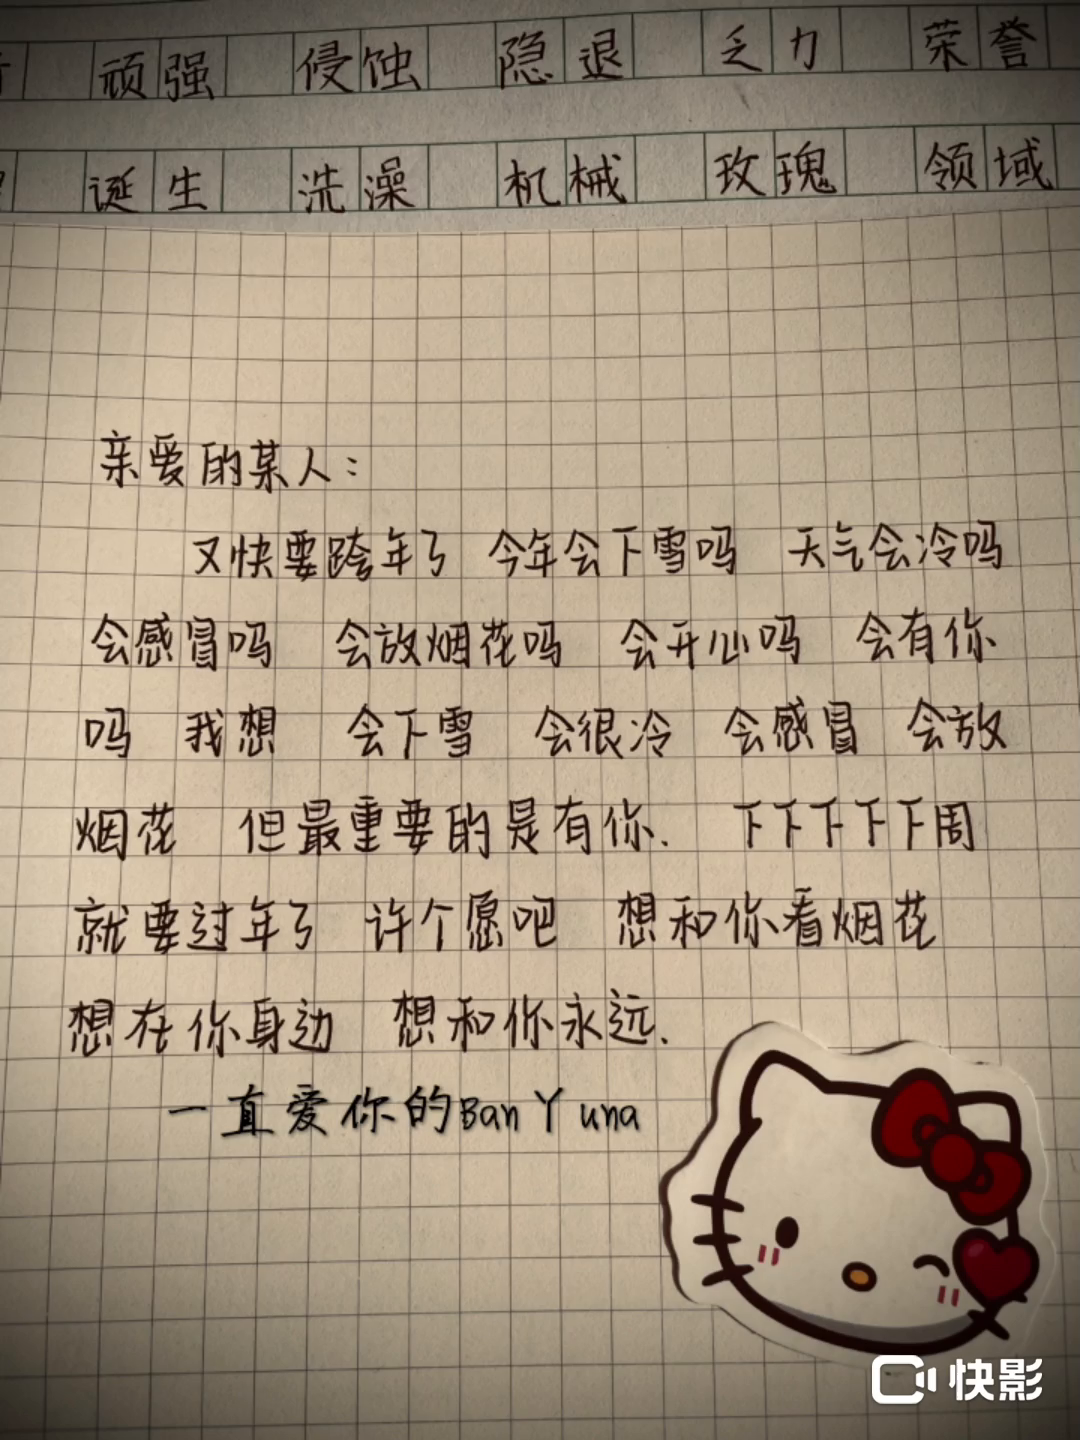 顽强 侵蚀 隐退 乏力 荣誉
诞生 洗澡 机械 玫瑰 领域
亲爱的某人：
又快要跨年了 今年会下雪吗 天气会冷吗
会感冒吗 会放烟花吗 会开心吗 会有你
吗 我想 会下雪 会很冷 会感冒 会放
烟花 但最重要的是有你. 下下下下下周
就要过年了 许个愿吧 想和你看烟花
想在你身边 想和你永远.
一直爱你的Ban Y una
快影